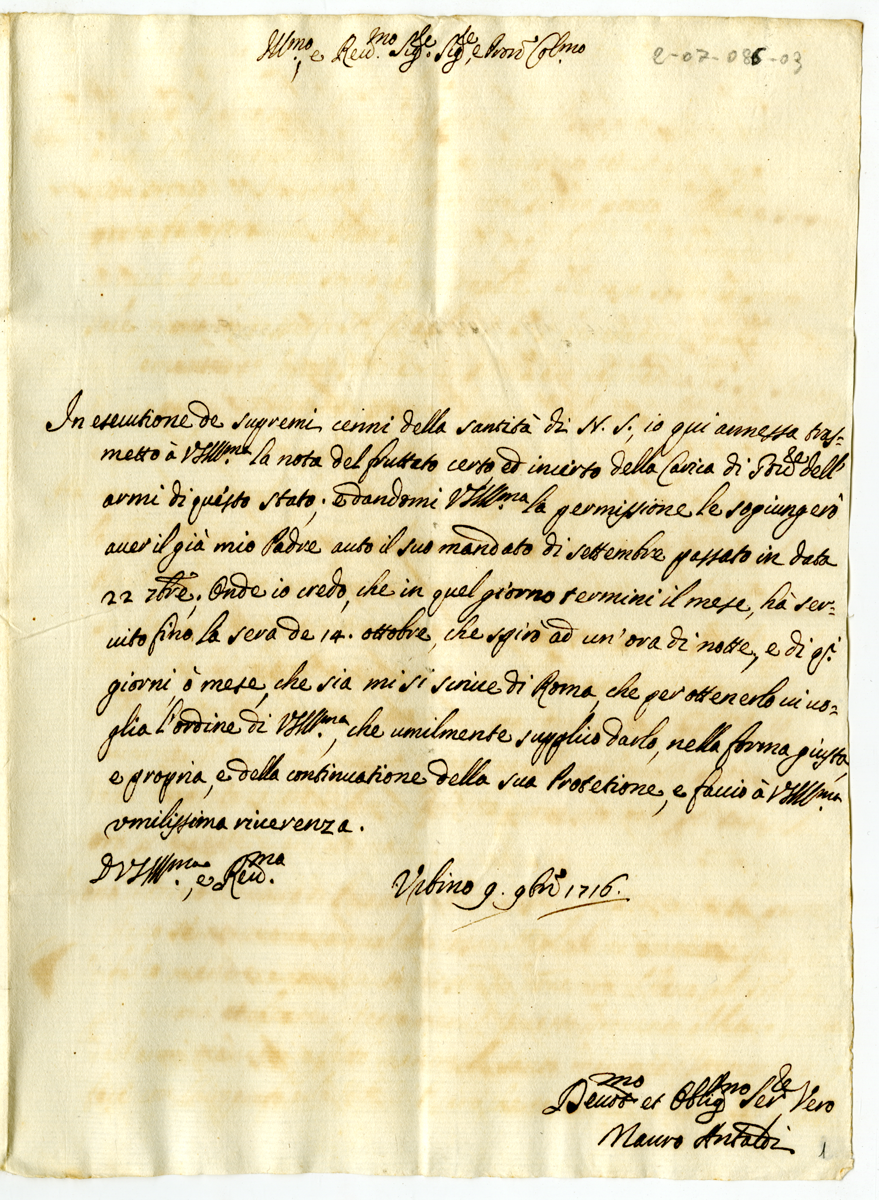 Ill.mo e Reu.mo Sig.re Sig.re, e Pron. Col.mo
2-07-086-03
In esecutione de supremi cenni della santità di N. S., io qui annessa tras-
metto à VSIll.ma la nota del fruttato certo ed incerto della Carica di dell'
armi di questo stato; e dandomi VSIll.ma la permissione le sogiungerò
auer il già mio Padre auto il suo mandato di settembre passato in data
22 7bre; Onde io credo, che in quel giorno termini il mese, hà ser-
uito fino la sera de 14. ottobre, che spirò ad un'ora di notte, e di qs.ti
giorni, ò mese, che sia mi si scriue di Roma, che per ottenerlo ui uo-
glia l'ordine di VSIll.ma, che umilmente supplico darlo, nella forma giusta,
e propria, e della continuatione della sua Protetione, e faccio à VSIll.ma
vmilissima riuerenza.
D VSIll.ma, e Reu.ma
Vrbino 9. 9bre 1716.
Deuot.mo et Oblig.mo Ser.re Vero
Mauro Antaldi
1